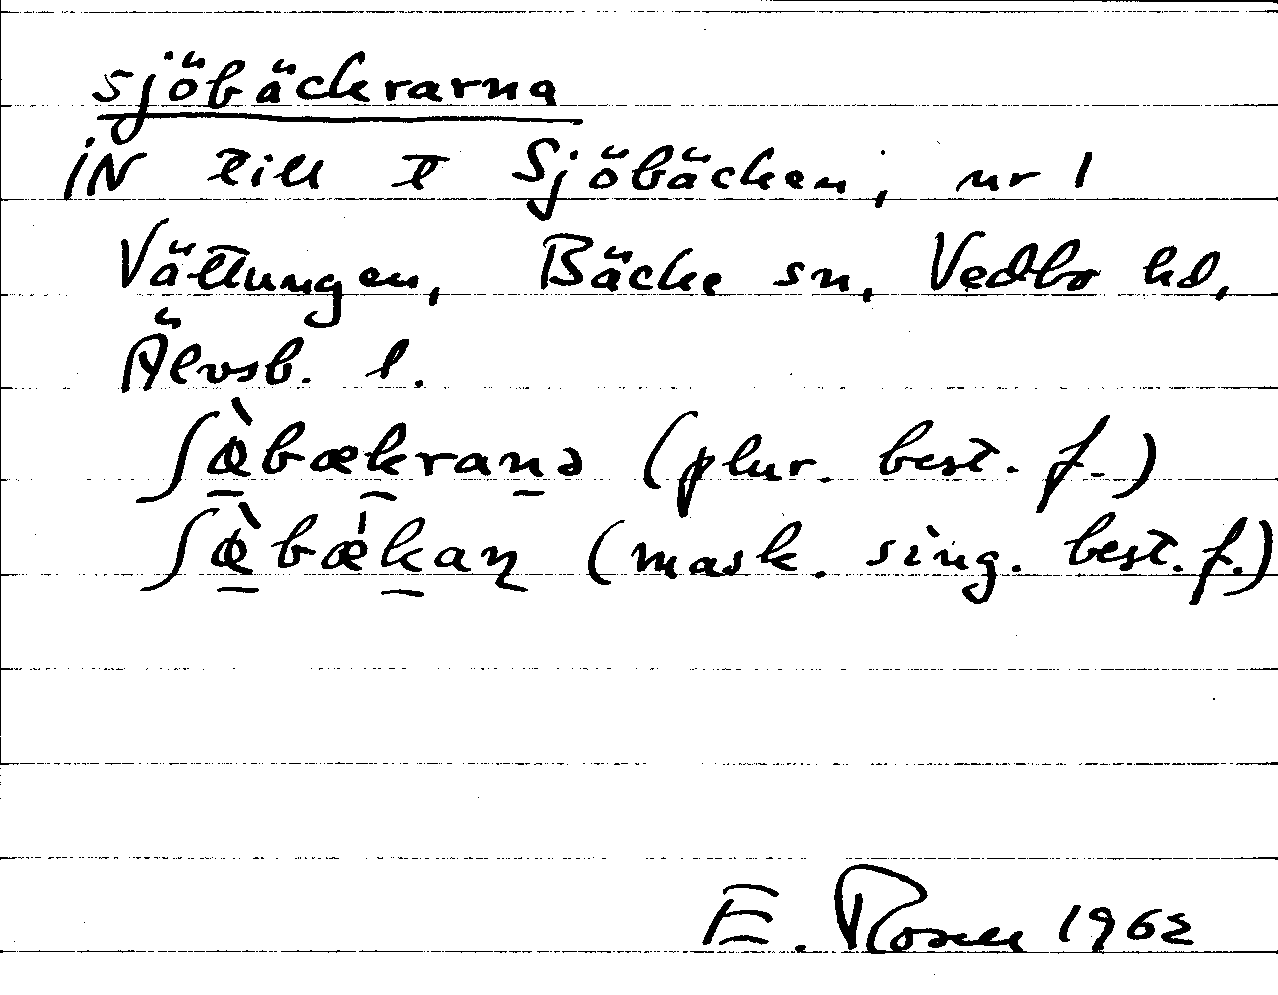 sjöbäckrarna
iN till t Sjöbäcken, nr 1
Vättungen, Bäcke sn, Vedbo hd,
Älvsb. l.
ʃø̀bækranə (plur. best. f.)
ʃø̀bækan (mask. sing. best. f.)
E. Rosell 1962